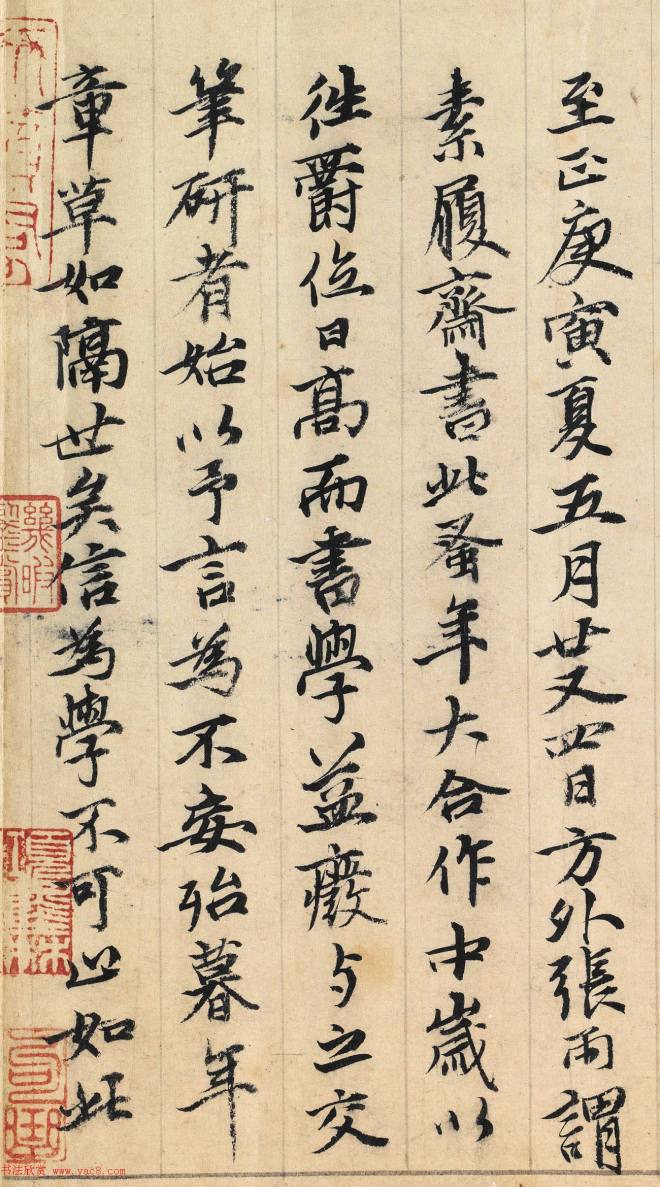 至正庚寅夏五月廿又四日方外張雨謂
素履齋書此蚤年大合作中歲以
徃爵位日高而書學益廢与之交
筆研者始以予言為不妄殆暮年
章草如隔世矣信為學不可止如此
书法欣赏 www.yac8.com